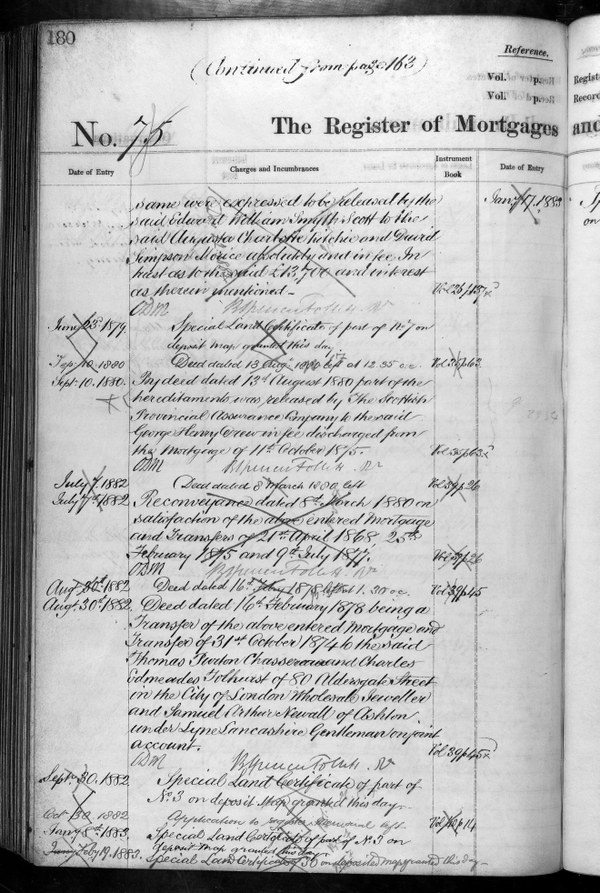 180
Reference.
(Continued from page 163)
Vol. p.
Vol. p.
No. 75
The Register of Mortgages and
Date of Entry
Charges and Incumbrances
Instrument Book
Date of Entry
same were expressed to be released by the
Jany 17. 1882
said Edward William Smyth Scott to the
said Augusta Charlotte and David
Simpson Morice absolutely and in fee In
trust as to the said £13,700 and interest
as therein mentioned
B Spencer Follett Rr
June 23d 1879
Special Land Certificate of part of No 7 on
deposit map granted this day
Sept. 10. 1880
Deed dated 13 Augt 1880 left at 12.35
Vol 35 p 63
Sept. 10. 1880.
By deed dated 13th August 1880 part of the
hereditaments was released by The Scottish
Provincial Assurance Company to the said
George Henry Crew in fee discharged from
the Mortgage of 11th October 1875.
Vol 35 p 63
B Spencer Follett Rr
July 7 1882
Deed dated 8 March 1880 left
Vol 39 p 26
July 7th 1882
Reconveyance dated 8th March 1880 on
satisfaction of the above entered Mortgage
and Transfers of 21st April 1868, 25th
February 1875 and 9th July 1877.
Vol 39 p 26
B Spencer Follett Rr
Augt 30th 1882
Deed dated 16th Feby 1878 left at 1.30
Vol 39 p 45
Augt 30th 1882
Deed dated 16th February 1878 being a
Transfer of the above entered Mortgage and
Transfer of 31st October 1874 to the said
Thomas and Charles
Edmeades Tolhurst of 80 Aldersgate Street
in the City of London Wholesale Jeweller
and Samuel Arthur Newall of Ashton
under Lyne Lancashire Gentleman on joint
account.
Vol 39 p 45
B Spencer Follett Rr
Sept. 30. 1882
Special Land Certificate of part of
No. 3 on deposit Map granted this day
Oct 30 1882
Application to register left
p 14
Jany 6th 1883
Special Land Certificate of part of No. 3 on
Deposit Map granted this day
Feby 19. 1883
Special Land Certificate 36 on deposited map granted this day